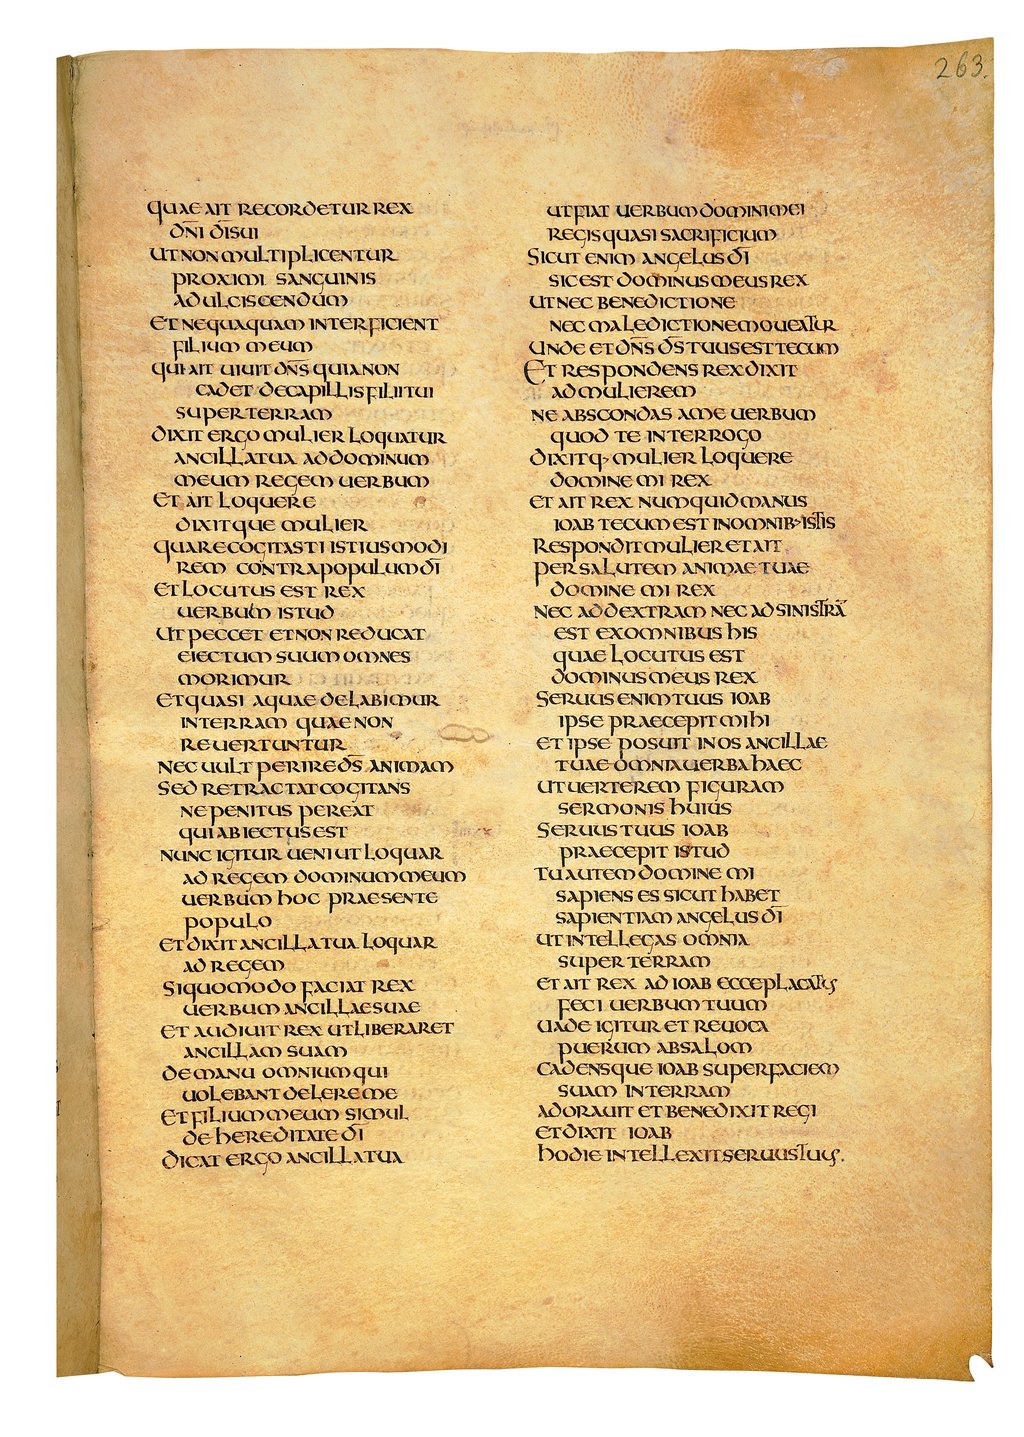 263.
QUAE AIT RECORDETUR REX
DN̄I DĪSUI
UT NON MULTIPLICENTUR
PROXIMI SANGUINIS
AD ULCISCENDUM
ET NEQUAQUAM INTERFICIENT
FILIUM MEUM
QUI AIT UIUIT DN̄S QUIA NON
CADET DE CAPILLIS FILII TUI
SUPER TERRAM
DIXIT ERGO MULIER LOQUATUR
ANCILLA TUA AD DOMINUM
MEUM REGEM UERBUM
ET AIT LOQUERE
DIXITQUE MULIER
QUARE COGITASTI ISTIUSMODI
REM CONTRA POPULUM DĪ
ET LOCUTUS EST REX
UERBUM ISTUD
UT PECCET ET NON REDUCAT
EIECTUM SUUM OMNES
MORIMUR
ET QUASI AQUAE DELABIMUR
IN TERRAM QUAE NON
REUERTUNTUR
NEC UULT PERIRE DS̄ ANIMAM
SED RETRACTAT COGITANS
NE PENITUS PEREAT
QUI ABIECTUS EST
NUNC IGITUR UENI UT LOQUAR
AD REGEM DOMINUM MEUM
UERBUM HOC PRAESENTE
POPULO
ET DIXIT ANCILLA TUA LOQUAR
AD REGEM
SI QUO MODO FACIAT REX
UERBUM ANCILLAE SUAE
ET AUDIUIT REX UT LIBERARET
ANCILLAM SUAM
DE MANU OMNIUM QUI
UOLEBANT DELERE ME
ET FILIUM MEUM SIMUL
DE HEREDITATE DĪ
DICAT ERGO ANCILLA TUA
UT FIAT UERBUM DOMINI MEI
REGIS QUASI SACRIFICIUM
SICUT ENIM ANGELUS DĪ
SIC EST DOMINUS MEUS REX
UT NEC BENEDICTIONE
NEC MALEDICTIONE MOUEATUR
UNDE ET DN̄S DS̄ TUUS EST TECUM
ET RESPONDENS REX DIXIT
AD MULIEREM
NE ABSCONDAS A ME UERBUM
QUOD TE INTERROGO
DIXITQ· MULIER LOQUERE
DOMINE MI REX
ET AIT REX NUMQUID MANUS
IOAB TECUM EST IN OMNIB· ISTIS
RESPONDIT MULIER ET AIT
PER SALUTEM ANIMAE TUAE
DOMINE MI REX
NEC AD DEXTRAM NEC AD SINISTRĀ
EST EX OMNIBUS HIS
QUAE LOCUTUS EST
DOMINUS MEUS REX
SERUUS ENIM TUUS IOAB
IPSE PRAECEPIT MIHI
ET IPSE POSUIT IN OS ANCILLAE
TUAE OMNIA UERBA HAEC
UT UERTEREM FIGURAM
SERMONIS HUIUS
SERUUS TUUS IOAB
PRAECEPIT ISTUD
TU AUTEM DOMINE MI
SAPIENS ES SICUT HABET
SAPIENTIAM ANGELUS DĪ
UT INTELLEGAS OMNIA
SUPER TERRAM
ET AIT REX AD IOAB ECCE PLACATUS
FECI UERBUM TUUM
UADE IGITUR ET REUOCA
PUERUM ABSALOM
CADENSQUE IOAB SUPER FACIEM
SUAM IN TERRAM
ADORAUIT ET BENEDIXIT REGI
ET DIXIT IOAB
HODIE INTELLEXIT SERUUS TUUS.